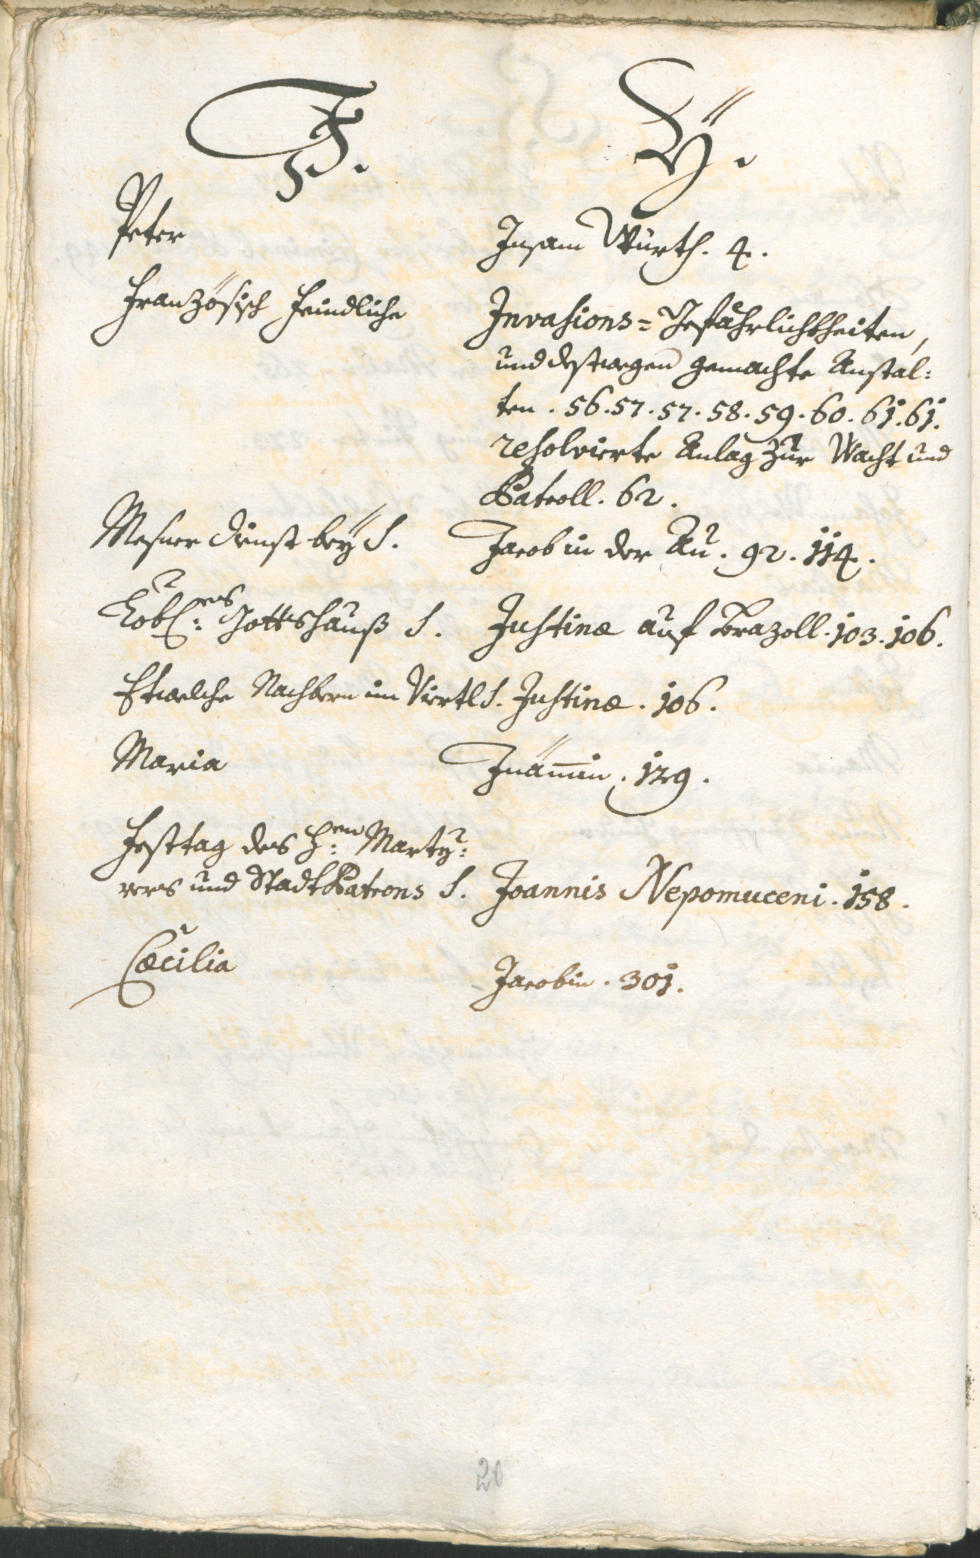 J. Ÿ.
Peter Insam Würth. 4.
Französisch feindliche Invasions= Gefährlichkheiten,
und destwegen gemachte Anstal:
ten. 56. 57. 57. 58. 59. 60. 61. 61.
resolvierte Anlag zur Wacht und
Patroll. 62.
Mesner dienst beÿ S. Jacob in der Au. 92. 114.
Löbl:es Gottshauß S. Justinæ auf Prazoll. 103. 106.
Etwelche Nachbern im Viertl S. Justinæ. 106.
Maria 129.
Festtag des H:en Martÿ:
rers und Stadt Patrons S. Joannis Nepomuceni. 158.
Cæcilia Jacobin. 301.
20